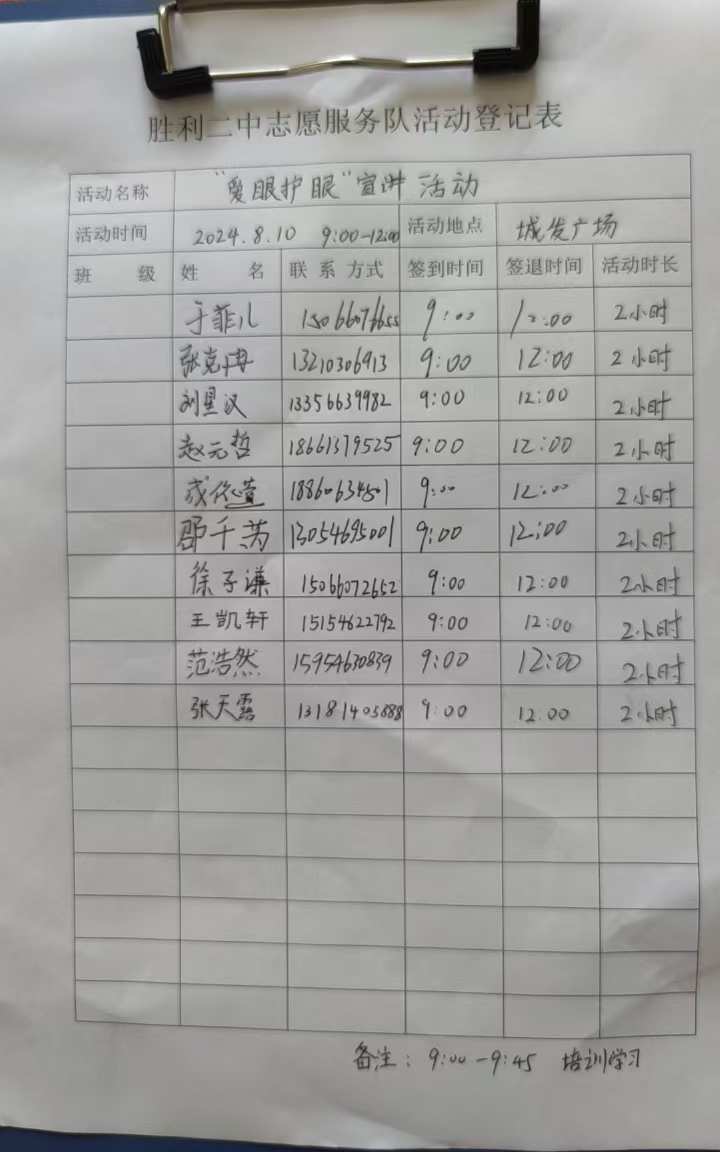 胜利二中志愿服务队活动登记表
活动名称 "爱眼护眼"宣讲活动
活动时间 2024.8.10 9:00-12:00 活动地点 城发广场
班 级 姓 名 联系方式 签到时间 签退时间 活动时长
于菲儿 15066076655 9:00 12:00 2小时
张克冉 13210306913 9:00 12:00 2小时
刘星汉 13356639982 9:00 12:00 2小时
赵元哲 18661379525 9:00 12:00 2小时
18860634501 9:00 12:00 2小时
邵千芮 13054695001 9:00 12:00 2小时
徐子谦 15066072652 9:00 12:00 2小时
王凯轩 15154622792 9:00 12:00 2小时
范浩然 15954630839 9:00 12:00 2小时
张天露 13181405888 9:00 12:00 2小时
备注：9:00-9:45 培训学习